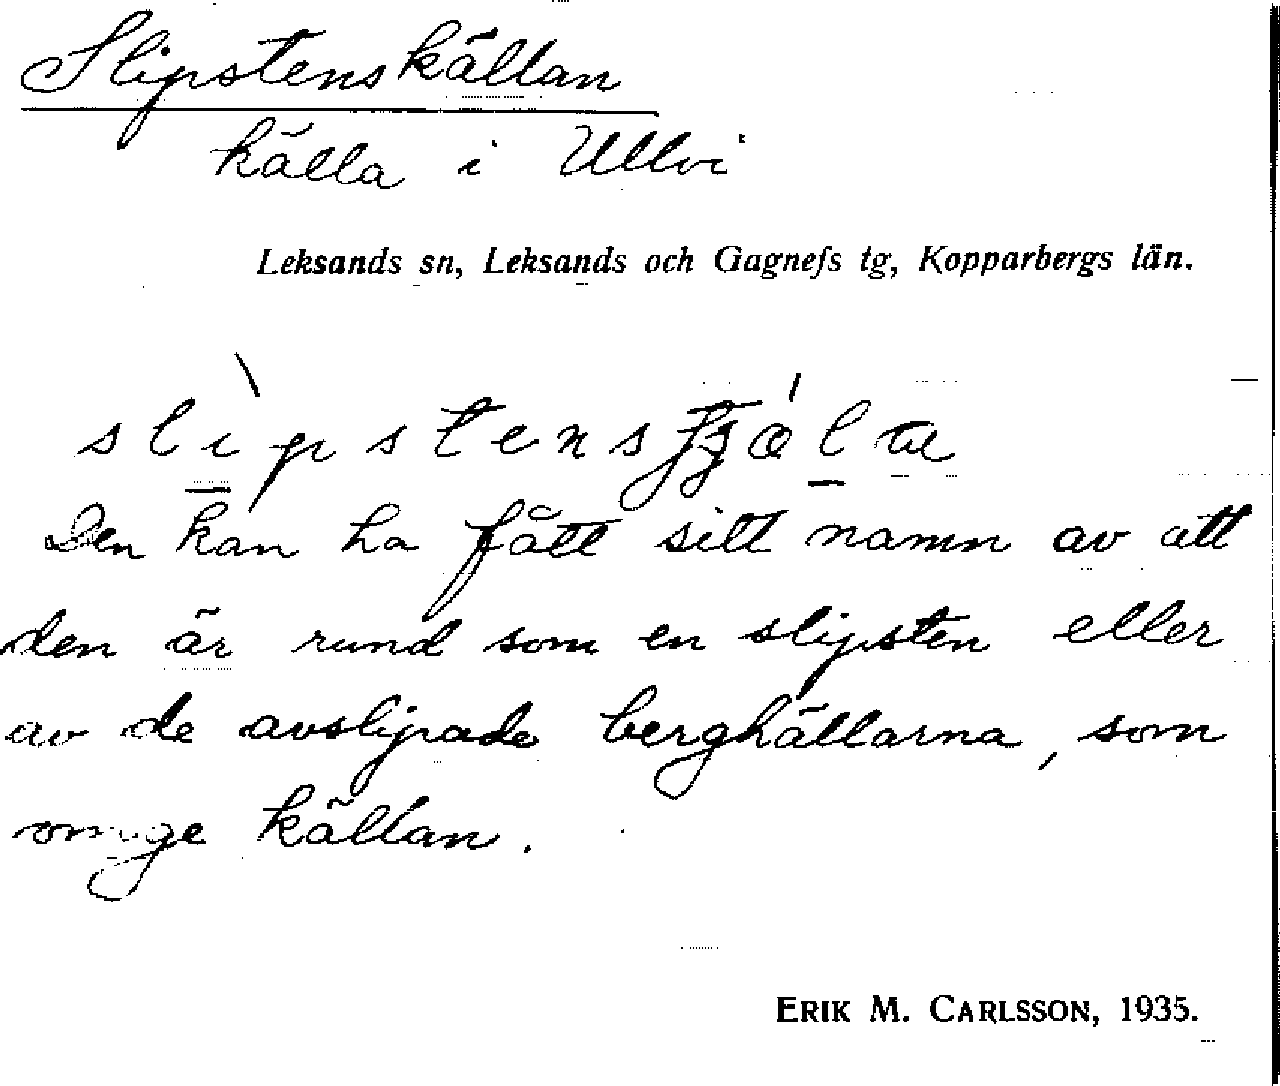 Slipstenskällan
källa i Ullvi
Leksands sn, Leksands och Gagnefs tg, Kopparbergs län.
Den kan ha fått sitt namn av att
den är rund som en slipsten eller
av de avslipade berghällarna, som
omge källan.
ERIK M. CARLSSON, 1935.